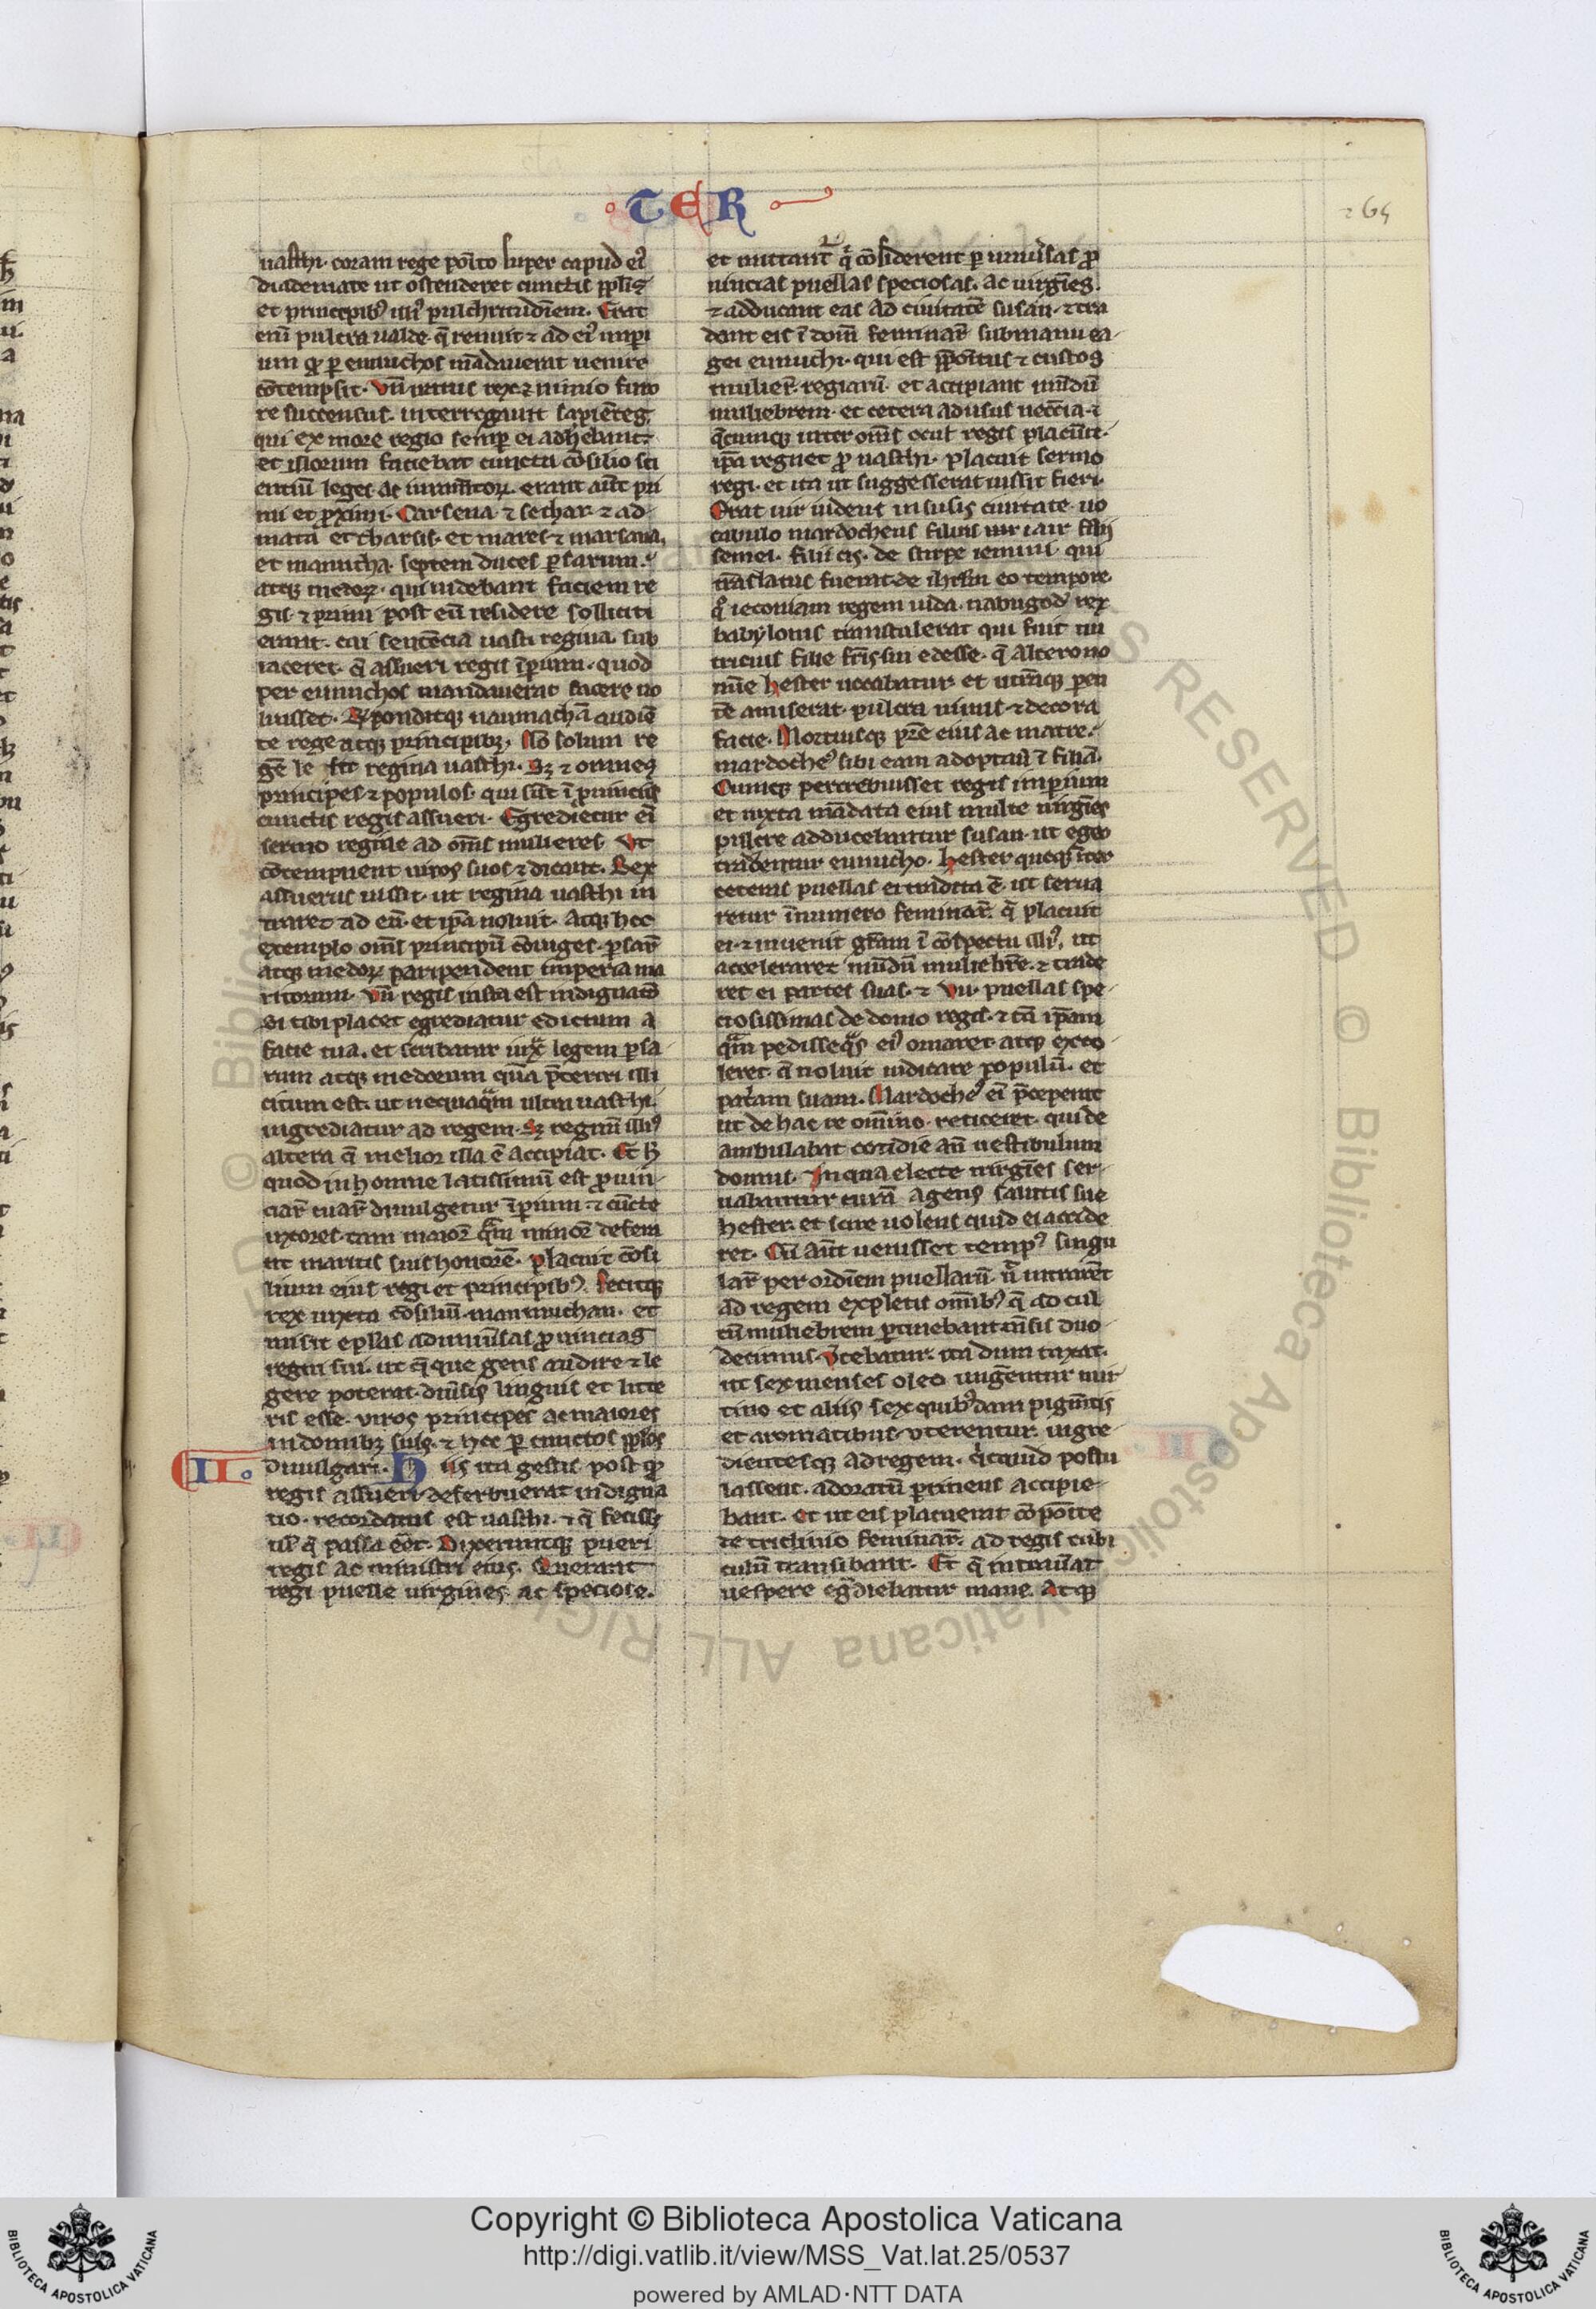 TER
265
uasthi. coram rege poĩto super capud eiꝰ
diademate ut ostenderet cunctis ppl̃is
et principibꝰ illiꝰ pulchritudĩem. Erat
eni᷑ pulcra ualde. q̃ renuit ⁊ ad eiꝰ imp̃i
um qđ ꝑ eunuchos mãdauerat uenire
cõtempsit. Vñ iratus rex ⁊ nimio furo
re succensus. interrogauit sapiẽtes
qui ex more regio semꝑ ei adhebant.
et illorum faciebat cuncta cõsilio sci
entiũ leges ac iura maioꝝ. erant aũt pri
mi et ꝓximi. Carsena ⁊ sethar ⁊ ad
mata et tharsis. et mares ⁊ marsana,
et manucha. septem duces ꝑsarum.
atqꝫ medoꝝ. qui uidebant faciem re
gis ⁊ primi post eũ residere solliciti
erant. cui sentẽcia uasti regina sub
iaceret. q̃ assueri regis ĩperium. quod
per eunuchos mandauerat facere no
luisset. Rñponditqꝫ namuchã audiẽ
te rege atqꝫ principibꝫ. Nõ solum re
gẽ lesit regina uasthi. Sꝫ ⁊ omnes
principes ⁊ populos. qui sũt ĩ ꝓuinciis
cunctis regis assueri. Egredietur ei᷑
sermo regine ad om̃s mulieres. Vt
cõtempnent uiros suos ⁊ dicant. Rex
assuerus iussit. ut regina uasthi in
traret ad eũ. et ip̃a noluit. Atqꝫ hoc
exemplo om̃s principũ cõiuges. ꝑsaꝝ
atqꝫ medoꝝ paruipendent imperia ma
ritorum. Vñ regis iusta est indignatõ
Si tibi placet egrediatur edictum a
facie tua. et scribatur iuxᵃ legem ꝑsa
rum atqꝫ medorum quã p̃teriri illi
citum est. ut nequaqᵃm ultra uasthi
ingrediatur ad regem. Sꝫ regnũ illiꝰ
altera q̃ melior illa ẽ accipiat. Et h̃
quod in homne latissimũ est ꝓuin
ciaꝝ tuaꝝ diuulgetur ĩperium. ⁊ cũcte
uxores. tam maioꝝ qᵃm minoꝝ defera
nt maritis suis honorẽ. Placuit cõsi
lium eius regi et principibꝰ. Fecitqꝫ
rex iuxta cõsiliũ. mannuchan. et
misit ep̃las ad uniũsas ꝓuincias
regni sui. ut q̃que gens audire ⁊ le
gere poterat. diũsis linguis et litte
ris esse. uiros principes ac maiores
in domibꝫ suis. ⁊ hoc ꝑ cunctos pplos
II. diuulgari. Hiis ita gestis postqđ
regis assueri deferbuerat indigna
tio. recordatus est uasthi. ⁊ q̃ feciss;
ul᷑ q̃ passa eẽt. Dixeruntqꝫ pueri
regis ac ministri eius. Querant
regi puelle uirgines ac speciose.
et mittant᷑ qⁱ cõsiderent ꝑ uniũsas ꝓ
uincias puellas speciosas. ac uirgĩes
⁊ adducant eas ad ciuitatẽ susan. ⁊ tra
dant eis ĩ domũ feminaꝝ sub manu ea
gei eunuchi. qui est p̃põitus ⁊ custos
mulieꝝ regiarũ. et accipiant mũdũ
muliebrem. et cetera ad usus necc̃ia. ⁊
q̃cumqꝫ inter om̃s ocul᷑ regis placũit.
ip̃a regnet ꝓ uasthi. placuit sermo
regi. et ita ut suggesserat iussit fieri.
Erat uir iudeus in susis ciuitate. uo
cabulo mardocheus filius uir iair filii
semei. filii cis. de stirpe iemini. qui
trãslatus fuerat. de ihrl̃m eo tempore
qͦ ieconiam regem iuda. nabugođ rex
babylonis transtulerat qui fuit nu
tricius filie frĩs sui edesse. q̃ altero no
mĩe hester uocabatur. et utrũqꝫ paren
tẽ amiserat. pulcra nimis ⁊ decora
facie. Mortuisqꝫ pr̃e eius ac matre.
mardocheꝰ sibi eam adoptauĩt ĩ filiã.
Cumqꝫ percrebuisset regis imperium
et iuxta mãdata eius multe uirgĩes
pulcre adducebantur susan. ut egeo
traderentur eunucho. hester quoqꝫ ĩter
ceteras puellas ei tradita ẽ. ut serua
retur ĩ numero feminaꝝ. q̃ placuit
ei. ⁊ inuenit gr̃am ĩ cõspectu illiꝰ, ut
acceleraret mũdũ muliebrẽ. ⁊ trade
ret ei partes suas. ⁊ vii. puellas spe
ciosissimas de domo regis. ⁊ tã ip̃am
qᵃm pedisseqᵃs eiꝰ ornaret atqꝫ exco
leret. q̃ noluit indicare populũ. et
patⁱam suam. Mardocheꝰ ei᷑ p̃ceperat
ut de hac re om̃ino reticeret. qui de
ambulabat cotidie añ uestibulum
domus. In qua electe uirgĩes ser
uabantur curã agens salutis sue
hester. et scire uolens quid ei accide
ret. Cũ aũt uenisset tempꝰ singu
laꝝ per ordinem puellarũ. ut intrarẽt
ad regem expletis om̃ibꝰ q̃ ad cul
tũ muliebrem ꝑtinebant. mẽsis duo
decimus. vtebatur. ita dum taxat.
ut sex menses oleo ungẽtur mir
tino et aliis sex quibꝰdam pigmẽtis
et aromatibus. vterentur. ingre
dientesqꝫ ad regem. qⁱcquid postu
lassent. ad ornatũ ꝑtinens accipie
bant. et ut eis placuerat cõpoĩte
de triclinio feminaꝝ. ad regis cubi
culũ transibant. Et q̃ intrauĩat
uespere eg̃diebatur mane. Atqꝫ
Copyright © Biblioteca Apostolica Vaticana
http://digi.vatlib.it/view/MSS_Vat.lat.25/0537
powered by AMLAD·NTT DATA